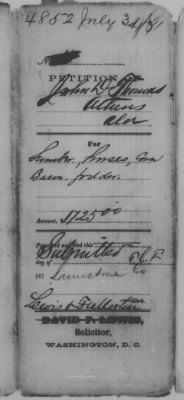 4852 July 3
No.
PETITION
John D. Thomas
Athens
Ala
For
Lumber, horses, Corn
Bacon, fodder.
Amount, $1725 00
Submitted
day of
187 Limestone Co
Lewis & Fullerton
DAVID P. LEWIS,
Solicitor,
WASHINGTON, D. C.